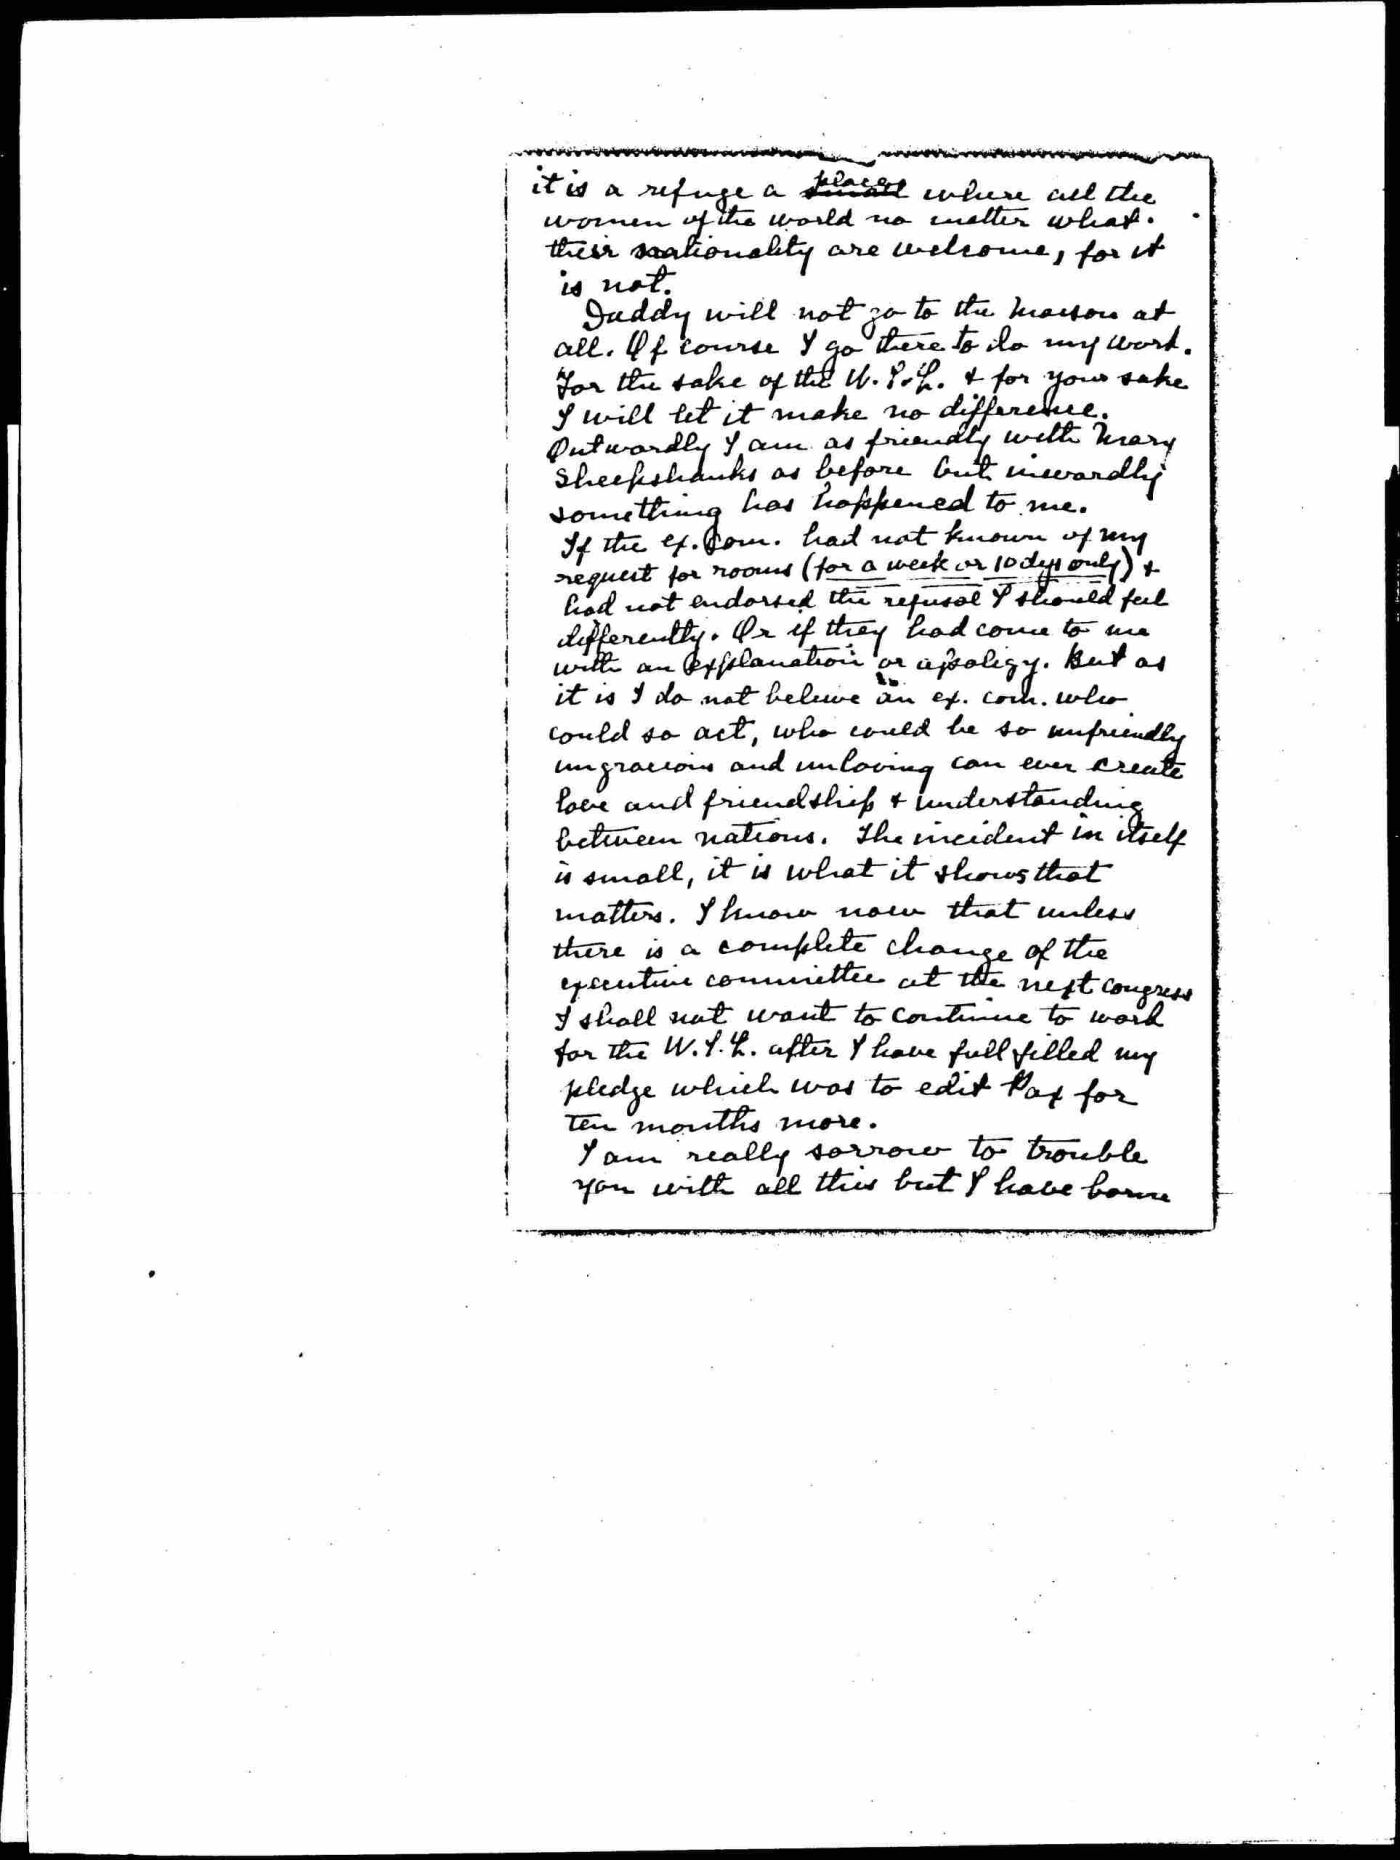 it is a refuge a place small where all the
women of the world no matter what.
their nationality are welcome, for it
is not.
Daddy will not go to the Maison at
all. Of course I go there to do my work.
For the sake of the W.I.L. & for your sake
I will let it make no difference.
Outwardly I am as friendly with Mary
Sheepshanks as before but inwardly
something has happened to me.
If the ex. Com. had not known of my
request for rooms (for a week or 10 dys only) &
had not endorsed the refusal I should feel
differently. Or if they had come to me
with an explanation or apoligy. But as
it is I do not believe an ex. com. who
could so act, who could be so unfriendly
ungracious and unloving can ever create
love and friendship & understanding
between nations. The incident in itself
is small, it is what it shows that
matters. I know now that unless
there is a complete change of the
executive committee at the next congress
I shall not want to continue to work
for the W.I.L. after I have fullfilled my
pledge which was to edit Pax for
ten months more.
I am really sorrow to trouble
you with all this but I have borne